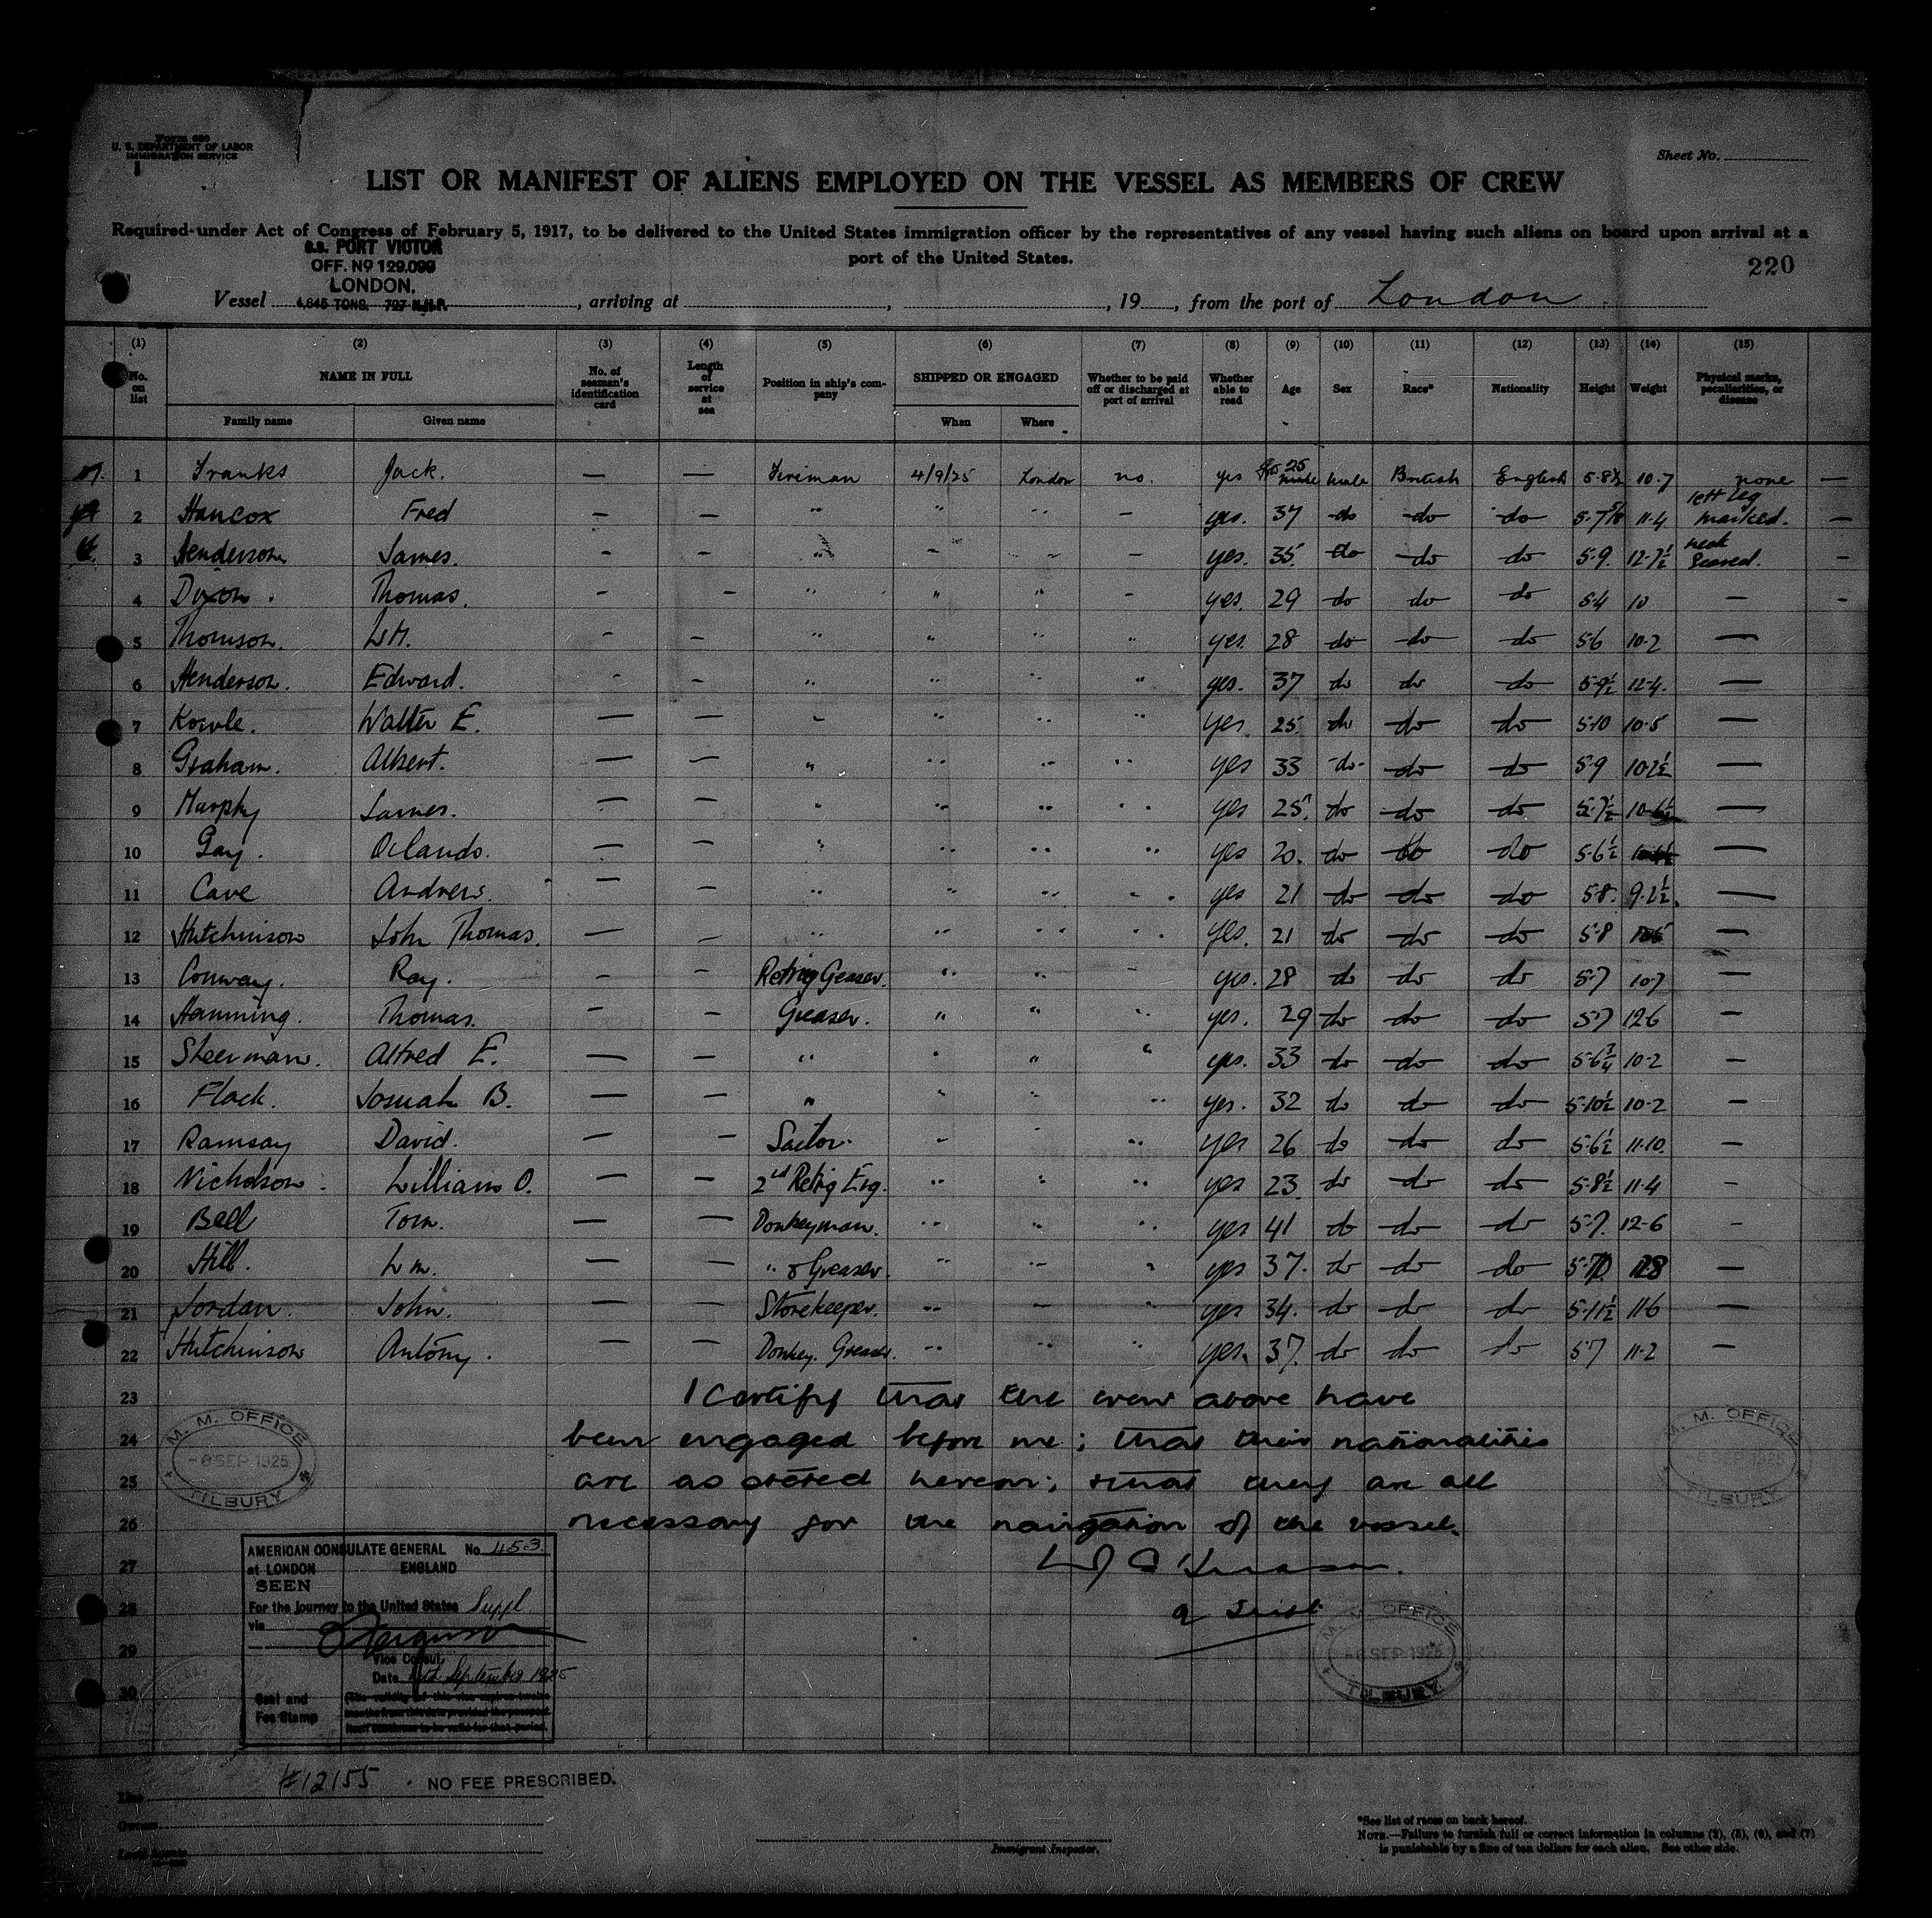 Form 680
U. S. DEPARTMENT OF LABOR
IMMIGRATION SERVICE
Sheet No.
LIST OR MANIFEST OF ALIENS EMPLOYED ON THE VESSEL AS MEMBERS OF CREW
Required under Act of Congress of February 5, 1917, to be delivered to the United States immigration officer by the representatives of any vessel having such aliens on board upon arrival at a
port of the United States.
S.S. PORT VICTOR
OFF. No 129.099
LONDON.
220
Vessel 4,645 TONS. 727 N.H.P. , arriving at , , 19 , from the port of London
(1) (2) (3) (4) (5) (6) (7) (8) (9) (10) (11) (12) (13) (14) (15)
No. on list NAME IN FULL No. of seaman's identification card Length of service at sea Position in ship's company SHIPPED OR ENGAGED Whether to be paid off or discharged at port of arrival Whether able to read Age Sex Race* Nationality Height Weight Physical marks, peculiarities, or disease
Family name Given name When Where
1 Franks Jack. — — Fireman 4/9/25 London no. yes 25 male British English 5-8½ 10-7 none —
2 Hancox Fred " " " — yes. 37 do do do 11-4 left leg marked. —
3 Henderson James. - - " - " - yes. 35. do do do 5-9. 12-7½ neck Scared. -
4 Dixon. Thomas. - - " " " - yes. 29 do do do 5-4 10 — -
5 Thomson. WM. - - " " " " yes. 28 do do do 5-6 10-2 —
6 Henderson. Edward. - - " " " " yes. 37 do do do 5-9½ 12-4. —
7 Kowle. Walter E. — — " " " " yes. 25. do do do 5-10 10-5 —
8 Graham. Albert. — — " " " " yes 33 do do do 5-9 10-2½ —
9 Murphy James. — — " " " " yes 25. do do do 5-7½ —
10 Gay. Orlando. — — " " " " yes 20. do do do 5-6½ —
11 Cave Andrew. — — " " " " yes 21 do do do 5-8. 9-2½. —
12 Hutchinson John Thomas. — — " " " " yes. 21 do do do 5-8 —
13 Conway. Ray. - - Refrig Greaser. " " - yes. 28 do do do 5-7 10-7 —
14 Hamming. Thomas. - - Greaser. " " " yes. 29 do do do 5-7 12-6 —
15 Sheerman. Alfred E. — — " " " " yes. 33 do do do 5-6¾ 10-2 —
16 Flack. Josuah B. — — " " " " yes. 32 do do do 5-10½ 10-2 —
17 Ramsay David. — — Sailor. " " " yes 26 do do do 5-6½ 11-10. —
18 Nicholson. William O. — — 2nd Refrig Eng. " " " yes 23. do do do 5-8½ 11-4 -
19 Bell Tom. — — Donkeyman. " " " yes 41 do do do 5-7. 12-6 -
20 Hill. Wm. — — " & Greaser. " " " yes 37. do do do —
21 Jordan. John. — — Storekeeper. " " " yes 34. do do do 5-11½ 11-6 —
22 Hutchinson Antony. — — Donkey. Greaser. " " " yes. 37. do do do 5-7 11-2 —
23 I certify that the crew above have
24 been engaged before me; that their nationalities
25 are as stated hereon; & that they are all
26 necessary for the navigation of the vessel.
27
28
29
30
M. M. OFFICE
-6 SEP 1925
TILBURY
M. M. OFFICE
-6 SEP 1925
TILBURY
M. M. OFFICE
-6 SEP 1925
TILBURY
AMERICAN CONSULATE GENERAL No. 453.
at LONDON ENGLAND
SEEN
For the journey to the United States Suppl.
via
Vice Consul,
Date September 1925
Seal and
Fee Stamp
#12155 . NO FEE PRESCRIBED.
Line
Owners
Local Agents
Immigrant Inspector.
*See list of races on back hereof.
NOTE.—Failure to furnish full or correct information in columns (2), (5), (6), and (7)
is punishable by a fine of ten dollars for each alien. See other side.